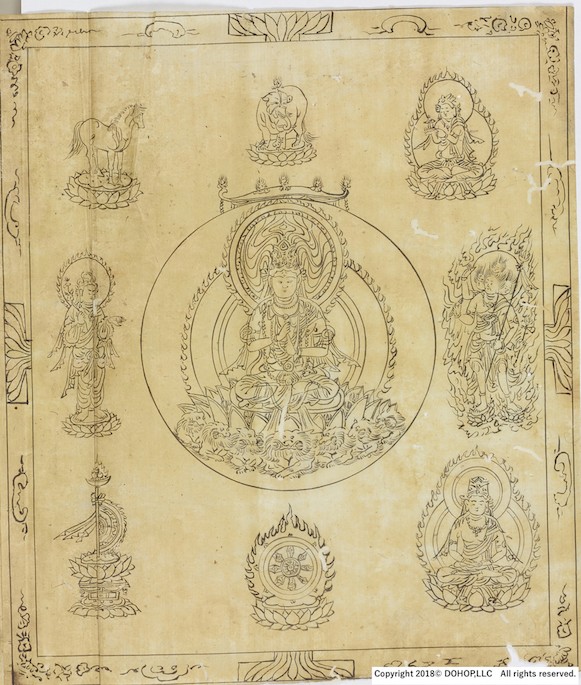 Copyright 2018© DOHOP,LLC All rights reserved.